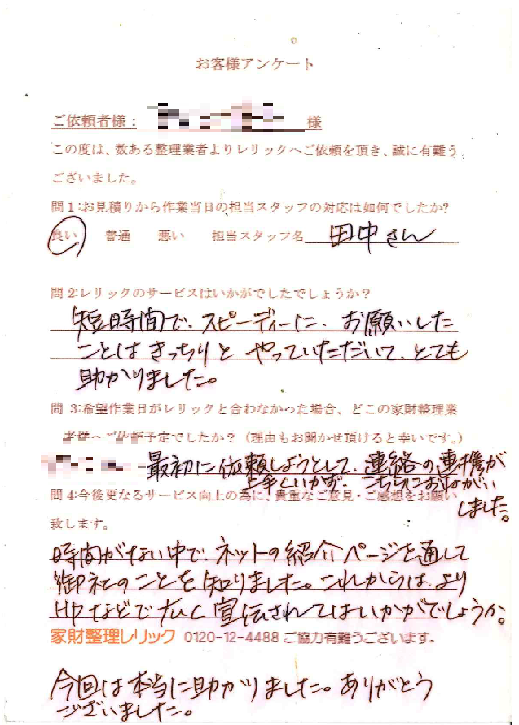 お客様アンケート
ご依頼者様： 様
この度は、数ある整理業者よりレリックへご依頼を頂き、誠に有難う
ございました。
問1:お見積りから作業当日の担当スタッフの対応は如何でしたか?
良い 普通 悪い 担当スタッフ名 田中さん
問2:レリックのサービスはいかがでしたでしょうか？
短時間で、スピーディーに、お願いした
ことはきっちりと やっていただいて、とても
助かりました。
問 3:希望作業日がレリックと合わなかった場合、どこの家財整理業
者様へご依頼予定でしたか？（理由もお聞かせ頂けると幸いです。）
最初に依頼しようとして、連絡の連携が
上手くいかず、こちらにおねがい
しました。
問4:今後更なるサービス向上の為に、貴重なご意見・ご感想をお願い
致します。
時間がない中で、ネットの紹介ページを通して
御社のことを知りました。これからは、より
HPなどで広く宣伝されてはいかがでしょうか。
家財整理レリック 0120-12-4488 ご協力有難うございます。
今回は本当に助かりました。ありがとう
ございました。